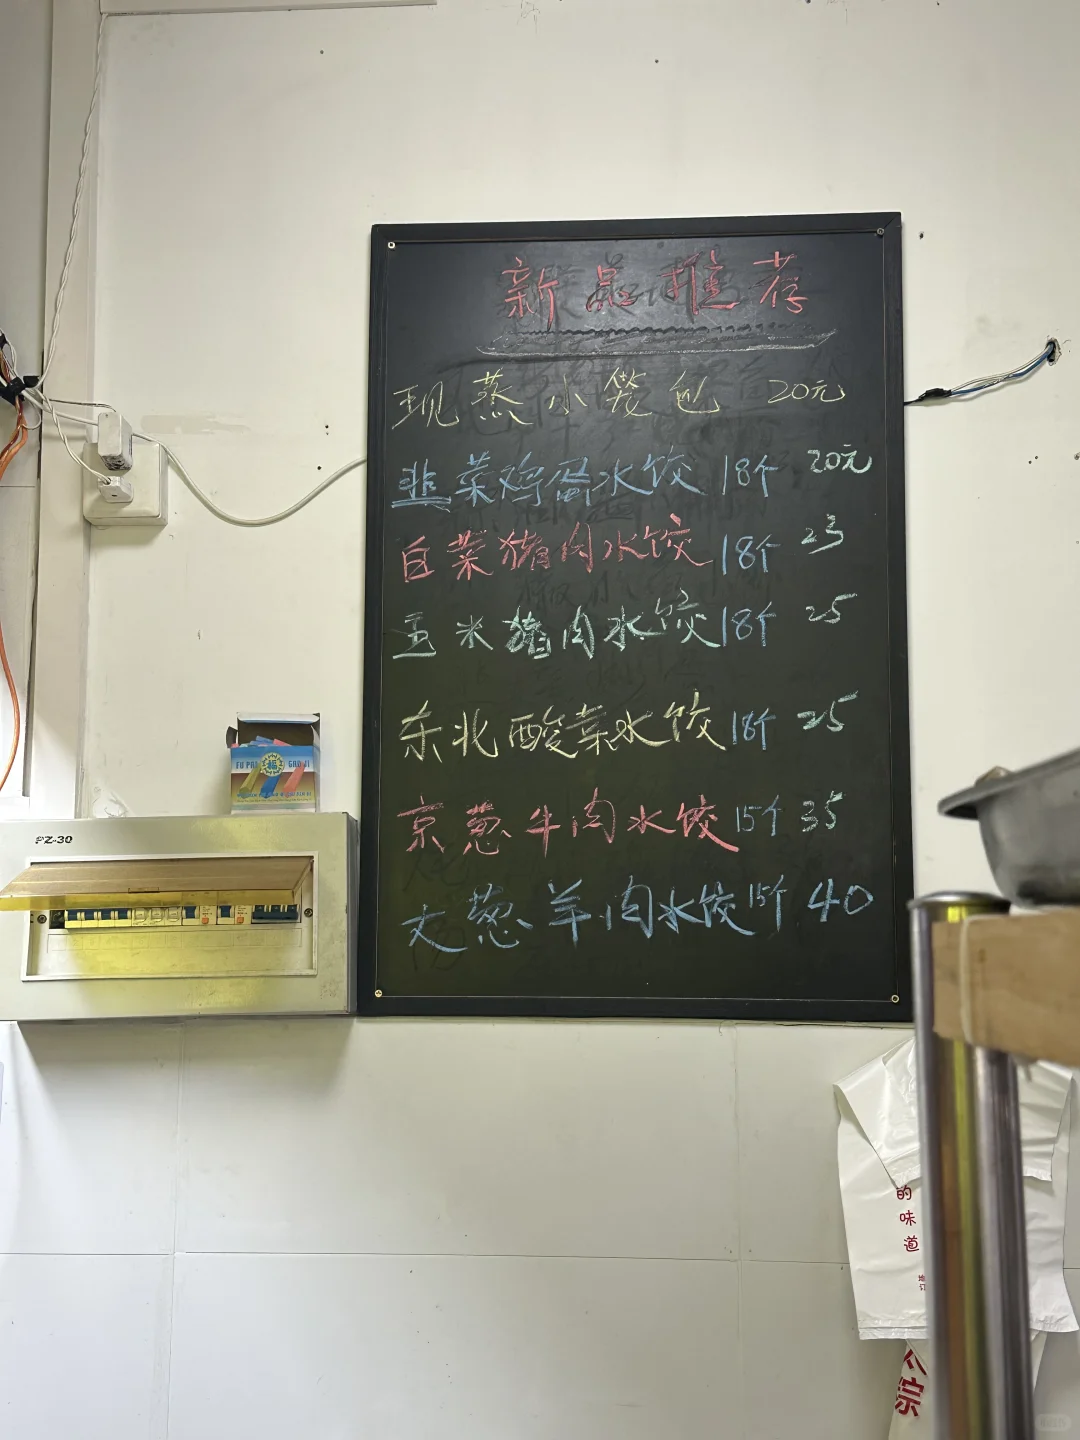 新品推荐
现蒸小笼包 20元
韭菜鸡蛋水饺 18个 20元
白菜猪肉水饺 18个 23
玉米猪肉水饺 18个 25
东北酸菜水饺 18个 25
京葱牛肉水饺 15个 35
大葱羊肉水饺 15个 40
FU PAI 福 GAO JI
PZ-30
的味道
综